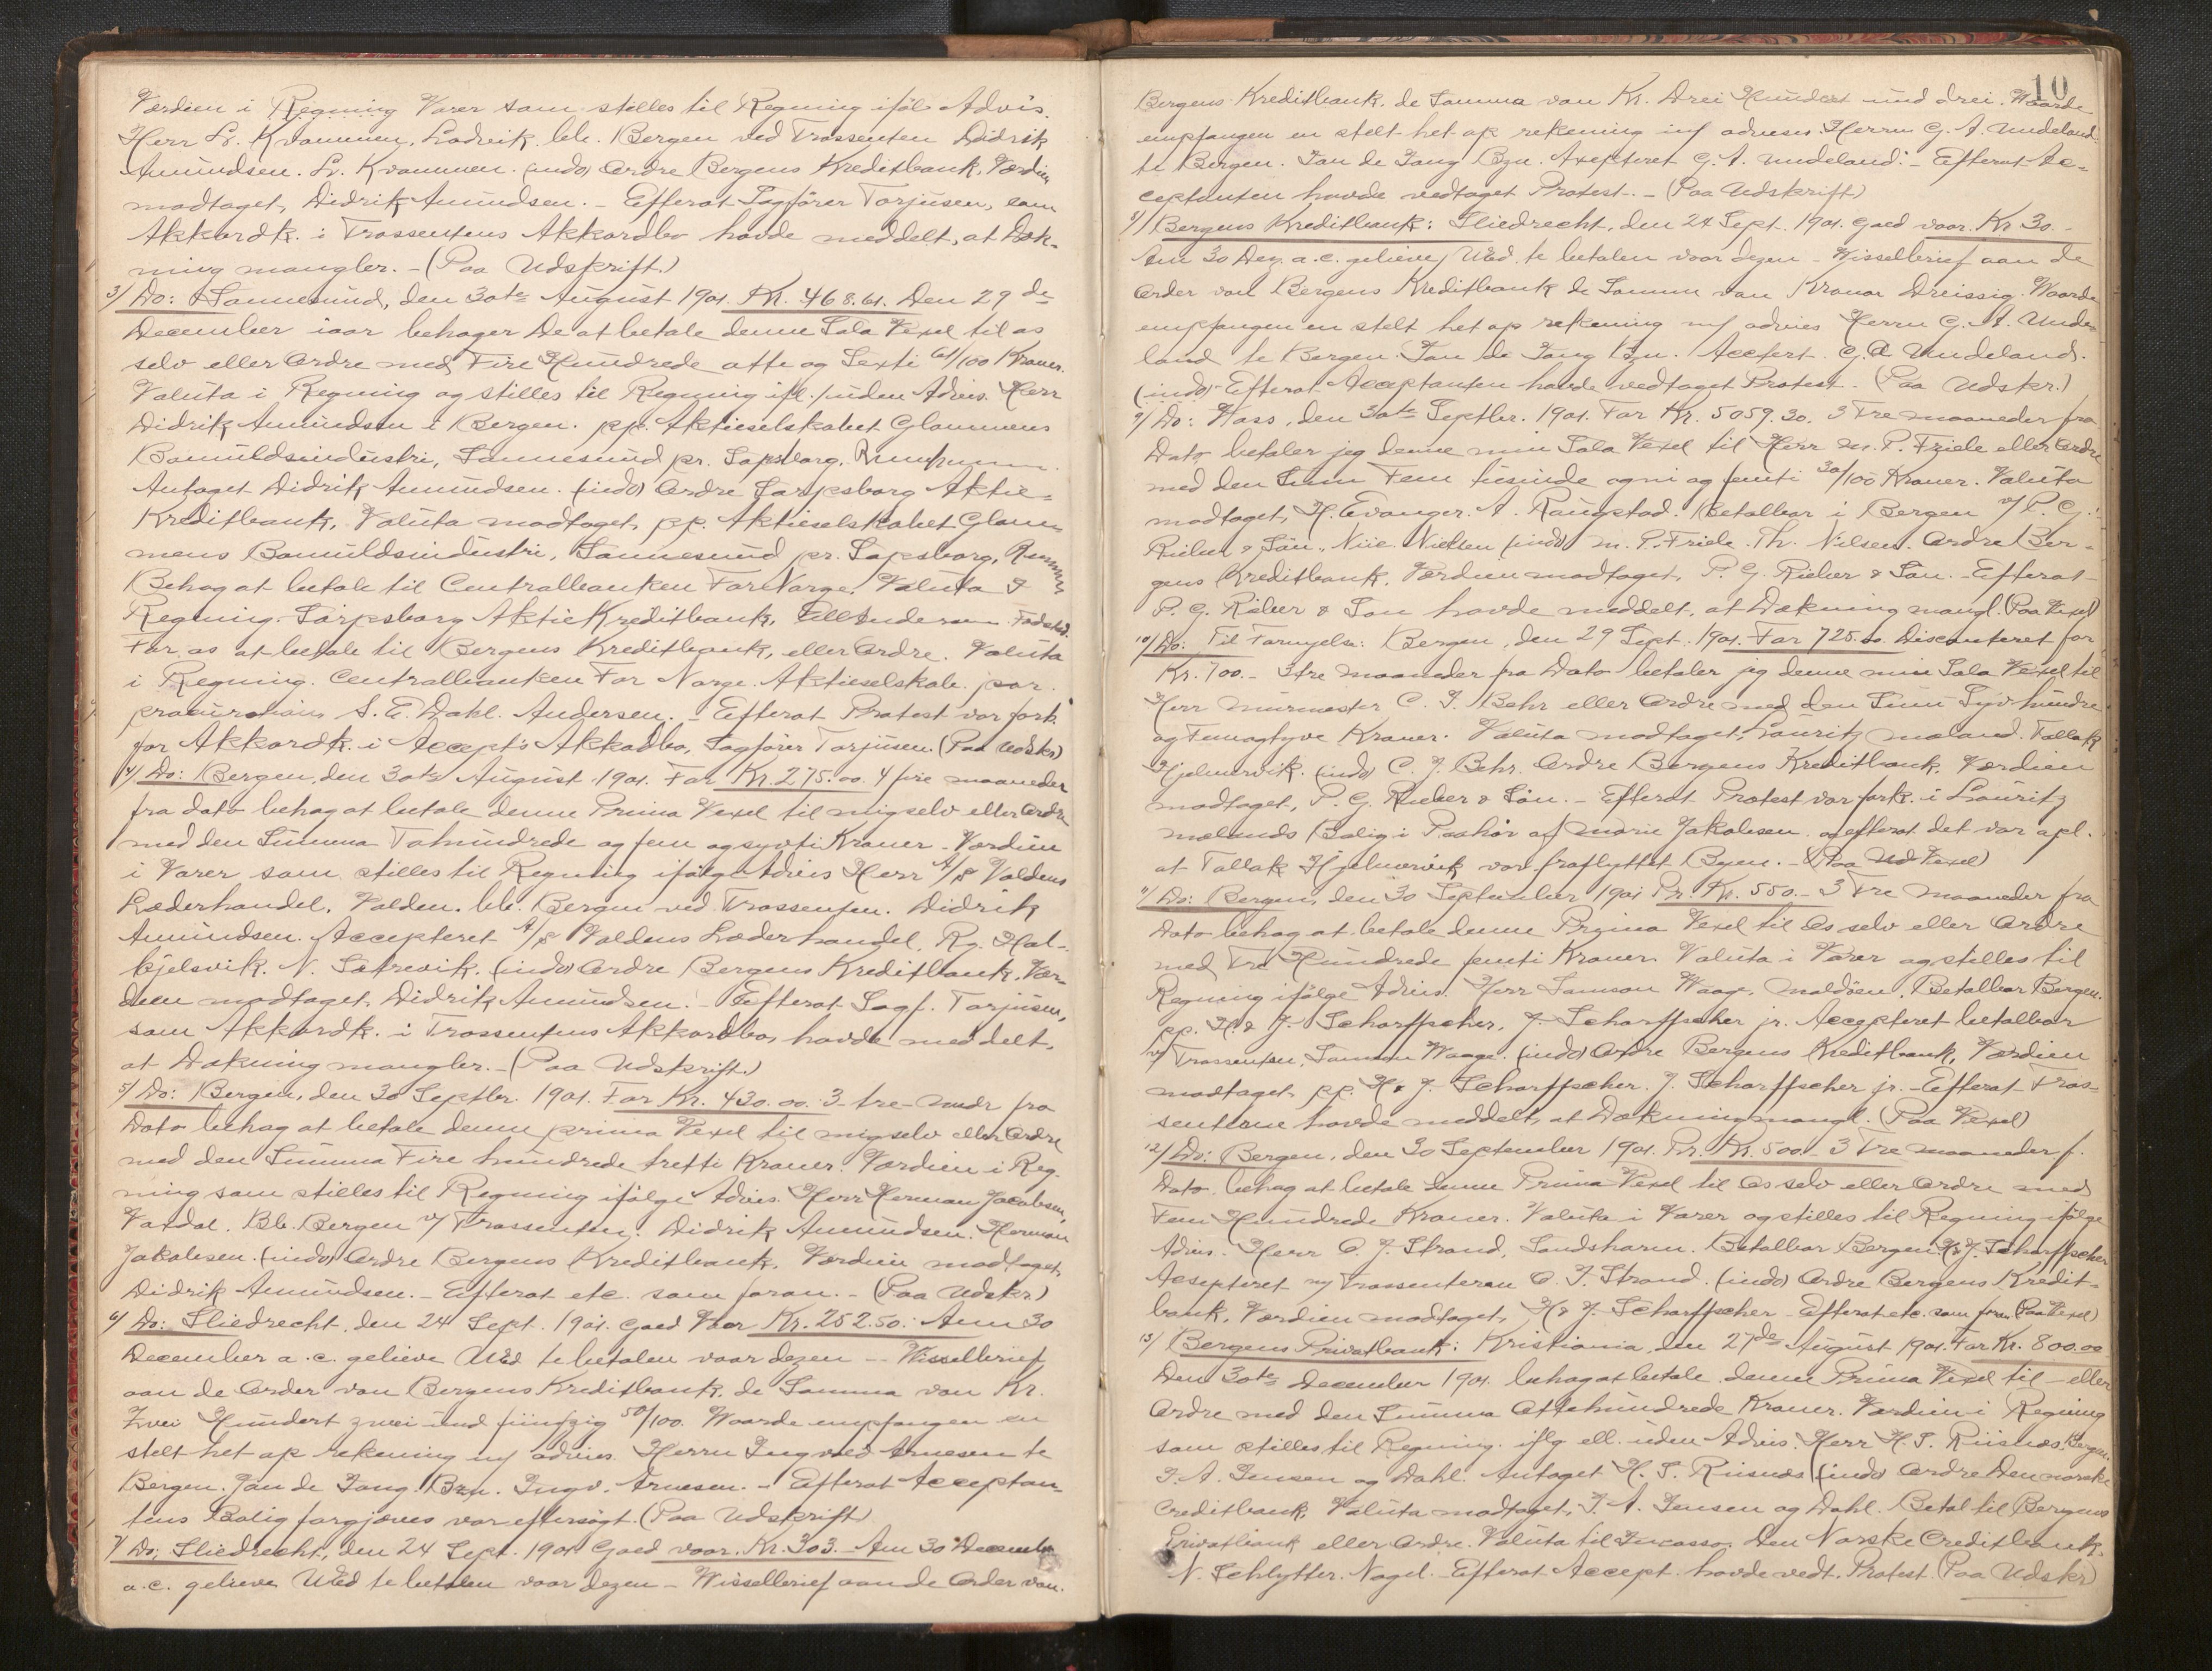 Værdien i Regning Varer som stilles til Regning iføl. Advis.
Herr L. Kvammen, Ladvik. bb. Bergen ved Trassenten Didrik
Amundsen. L. Kvammen. (indo) Ordre Bergens Kreditbank, Værdien
modtaget, Didrik Amundsen. - Efterat Sagfører Torjusen, som
Akkordk. i Trassentens Akkordbo havde meddelt, at Dæk-
ning mangler. - (Paa Udskrift.)
3/ Do: Sannesund, den 30te August 1901. Kr. 468.61. Den 29de
December iaar behager De at betale denne Sola Vexel til os
selv eller Ordre med Fire Hundrede otte og Sexti 61/100 Kroner.
Valuta i Regning og stilles til Regning ifl./uden Advis. Herr
Didrik Amundsen i Bergen. pp. Aktieselskabet Glommens
Bomuldsindustri, Sannesund pr. Sarpsborg,
Antaget Didrik Amundsen. (indo) Ordre Sarpsborg Aktie-
Kreditbank, Valuta modtaget, pp. Aktieselskabet Glom-
mens Bomuldsindustri, Sannesund pr. Sarpsborg,
Behag at betale til Centralbanken For Norge. Valuta I
Regning. Sarpsborg AktieKreditbank,
For os at betale til Bergens Kreditbank, eller Ordre. Valuta
i Regning. Centralbanken For Norge. Aktieselskab. par
procuration S. E. Dahl. Andersen. - Efterat Protest var fork.
for Akkordk. i Accept's Akkodbo, Sagfører Torjusen. (Paa Udskr)
4/ Do: Bergen, den 30te August 1901. For Kr. 275.00. 4 fire maaneder
fra dato behag at betale denne Prima Vexel til mig selv eller Ordre
med den Summa Tohundrede og fem og syvti Kroner - Værdien
i Varer som stilles til Regning ifølge Advis Herr A/S Voldens
Læderhandel, Volden. bb. Bergen ved Trassenten. Didrik
Amundsen. Accepteret A/S Voldens Læderhandel, Rg. Hal-
kjelsvik. N. Sætrevik. (indo) Ordre Bergens Kreditbank, Vær-
dien modtaget, Didrik Amundsen. - Efterat Sagf. Torjusen,
som Akkordk. i Trassentens Akkordbo, havde meddelt,
at Dækning mangler. - (Paa Udskrift.)
5/ Do: Bergen, den 30 Septbr. 1901. For Kr. 430.00. 3 - tre - Mndr fra
Dato behag at betale denne prima Vexel til mig selv eller Ordre
med den Summa Fire hundrede tretti Kroner. Værdien i Reg-
ning som stilles til Regning ifølge Advis. Herr Herman Jacobsen,
Vatdal. Bb. Bergen v/ Trassenten. Didrik Amundsen. Herman
Jakobsen. (indo) Ordre Bergens Kreditbank, Værdien modtaget,
Didrik Amundsen. - Efterat etc. som foran. - (Paa Udskr)
6/ Do: Sliedrecht, den 24 Sept. 1901. Goed Voor Kr. 252.50. Am 30
December a. c. gelieve UEd te betalen voor dezen -- Wisselbrief
aan de Order van Bergens Kreditbank, de Somma van Kr.
Zwei Hundert zwei und fünfzig 50/100. Waarde empfangen en
stelt het op rekening mf advies. Herrn Ingvald Arnesen te
Bergen. Jan de Jong Bzn. Ingv. Arnesen. - Efterat Acceptan-
tens Bolig forgjæves var eftersøgt. (Paa Udskrift)
7/ Do: Sliedrecht, den 24 Sept. 1901 Goed voor. Kr. 303. - Am 30 December
a. c. gelieve UEd te betalen voor dezen - Wisselbrief aan de Order van.
10
Bergens Kreditbank, de Somma van Kr. Drei Hundert und drei. Waarde
empfangen en stelt het op rekening mf advies Herrn G. A. Undeland
te Bergen. Jan de Jong Bzn. Axepteret G. A. Undeland. - Efterat Ac-
ceptanten havde vedtaget Protest. - (Paa Udskrift)
8/ Bergens Kreditbank: Sliedrecht, den 24 Sept. 1901. Goed voor. Kr 30. -
Am 30 Dez. a. c. gelieve UEd. te betalen voor dezen - Wisselbrief aan de
Order van Bergens Kreditbank de Somma van Kronor Dreissig. Waarde
empfangen en stelt het op rekening mf advies Herrn G. A. Unde-
land te Bergen. Jan de Jong Bzn. Accepert. G. A Undeland.
(indo) - Efterat Acceptanten havde vedtaget Protest. - (Paa Udskr.)
9/ Do: Woss, den 30te Septbr. 1901. For Kr. 5059.30. 3 Tre maaneder fra
Dato betaler jeg denne min Sola Vexel til Herr M. P. Friele eller Ordre
med den Sum Fem tusinde og ni og femti 30/100 Kroner. Valuta
modtaget, H. Evanger. A. Rongstad. Betalbar i Bergen v/ P. G.
Rieber & Søn. (indo) M. P. Friele. Th. Nilsen. Ordre Ber-
gens Kreditbank, Værdien modtaget, P. G. Rieber & Søn. - Efterat
P. G. Rieber & Søn havde meddelt, at Dækning mangl. (Paa Vexel)
10/ Do: Til Fornyelse: Bergen, den 29 Sept. 1901. For 725.00. Disconteret for
Kr. 700. - 3 tre maaneder fra Dato betaler jeg denne min Sola Vexel til
Herr Murmester C. J. Behr eller Ordre med den Sum Syv hundre
og Femogtyve Kroner. Valuta modtaget. Lauritz Mæland. Tallak
Hjelmervik. (indo) C. J. Behr. Ordre Bergens Kreditbank, Værdien
modtaget, P. G. Rieber & Søn. - Efterat Protest var fork. i Lauritz
Mælands Bolig i Paahør af Marie Jakobsen, og efterat det var opl.
at Tallak Hjelmervik var fraflyttet Byen. - (Paa Vexel)
11/ Do: Bergen, den 30 September 1901 Pr. Kr. 550. - 3 Tre maaneder fra
Dato behag at betale denne Prima Vexel til Os selv eller Ordre
med Hundrede femti Kroner. Valuta i Varer og stilles til
Regning ifølge Advis. Herr Samson Waage, Maldøen. Betalbar Bergen.
pp. H. & J. Scharffscher, J. Scharffscher jr. Accepteret betalbar
v/ Trassenten. Samson Waage. (indo) Ordre Bergens Kreditbank, Værdien
modtaget, pp. H & J. Scharffscher. J. Scharffscher jr. - Efterat Tras-
senterne havde meddelt, at Dækning mangl. (Paa Vexel)
12/ Do: Bergen, den 30 September 1901. Pr. Kr. 500. - 3 Tre maaneder f.
Dato, behag at betale denne Prima Vexel til Os selv eller Ordre med
Fem Hundrede Kroner. Valuta i Varer og stilles til Regning ifølge
Advis. - Herr O. J. Strand, Sandshavn. Betalbar Bergen. H & J. Scharffscher
Accepteret Trassenteren O. J. Strand. (indo) Ordre Bergens Kredit-
bank, Værdien modtaget, H & J. Scharffscher - Efterat etc. som foran (Paa Vexel)
13/ Bergens Privatbank: Kristiania, den 27de August 1901. For Kr. 800.00
Den 30te December 1901. behag at betale denne Prima Vexel til - eller
Ordre med den Summa Ottehundrede Kroner. Værdien i Regning
som stilles til Regning. iflg. ell. uden Advis. Herr H. S. Riisnæs. Bergen.
J. A. Jensen og Dahl. Antaget H. S. Riisnæs (indo) Ordre Den norske
Creditbank, Valuta modtaget, J. A. Jensen og Dahl. Betal til Bergens
Privatbank eller Ordre. Valuta til Incasso. Den Norske Creditbank.
N. Schlytter. Nagel. - Efterat Accept. havde vedt. Protest. (Paa Udskr)